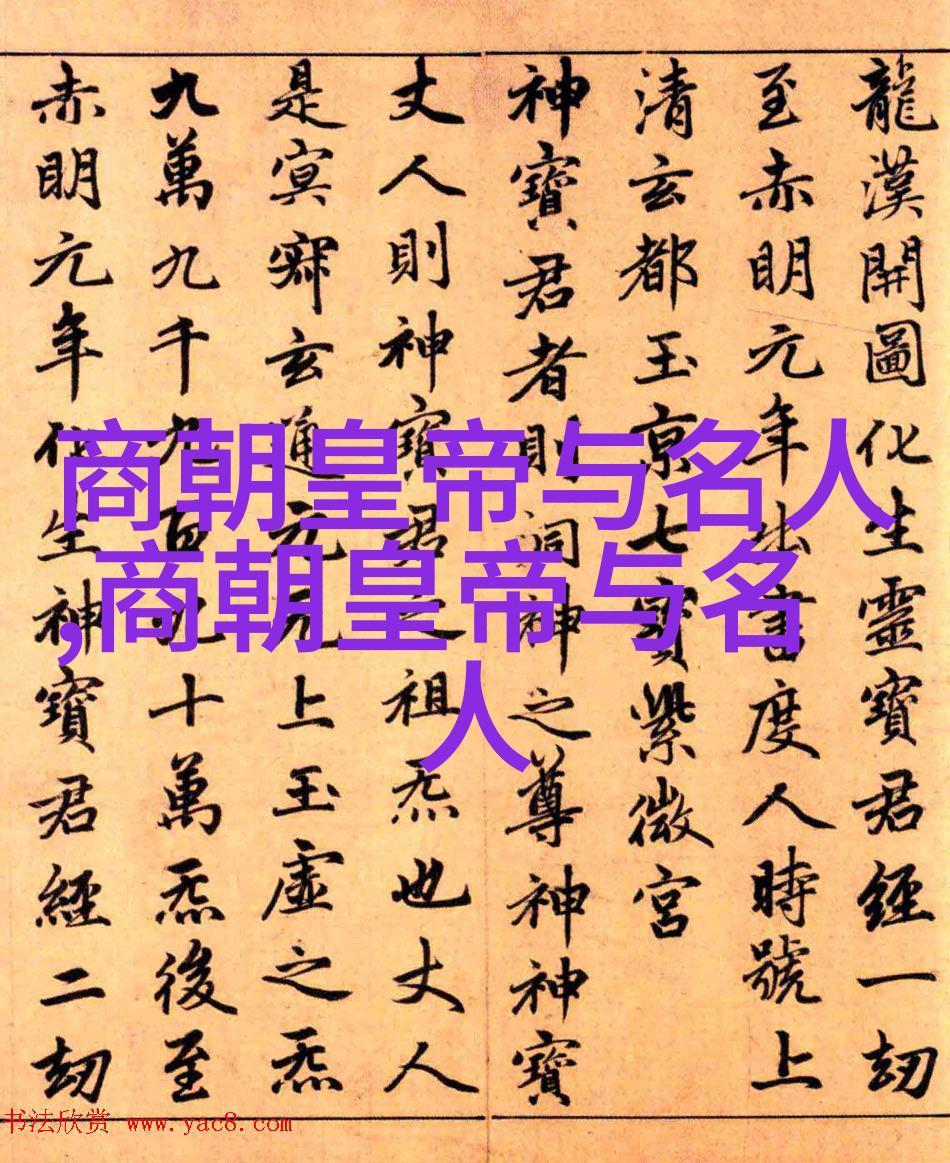 龍漢開圖化生靈寶君經一劫
至赤明元年出書度人時號上
清玄都玉京七寶紫微宮
神寶君者則洞神之尊神神寶
丈人則神寶君之祖炁也丈人
是冥寂玄通元无上玉虛之炁
九萬九千九百九十萬炁後至
赤明元年化生神寶君經二劫
商朝皇帝与名人
,商朝皇帝与名
人
书法欣赏 www.yac8.com